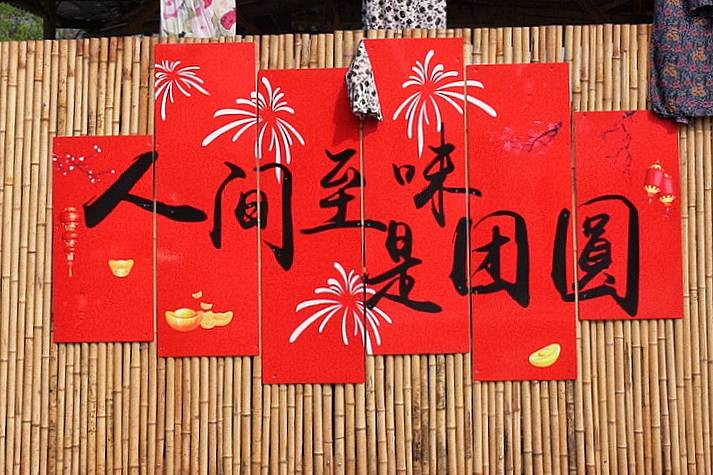 人间至味是团圆